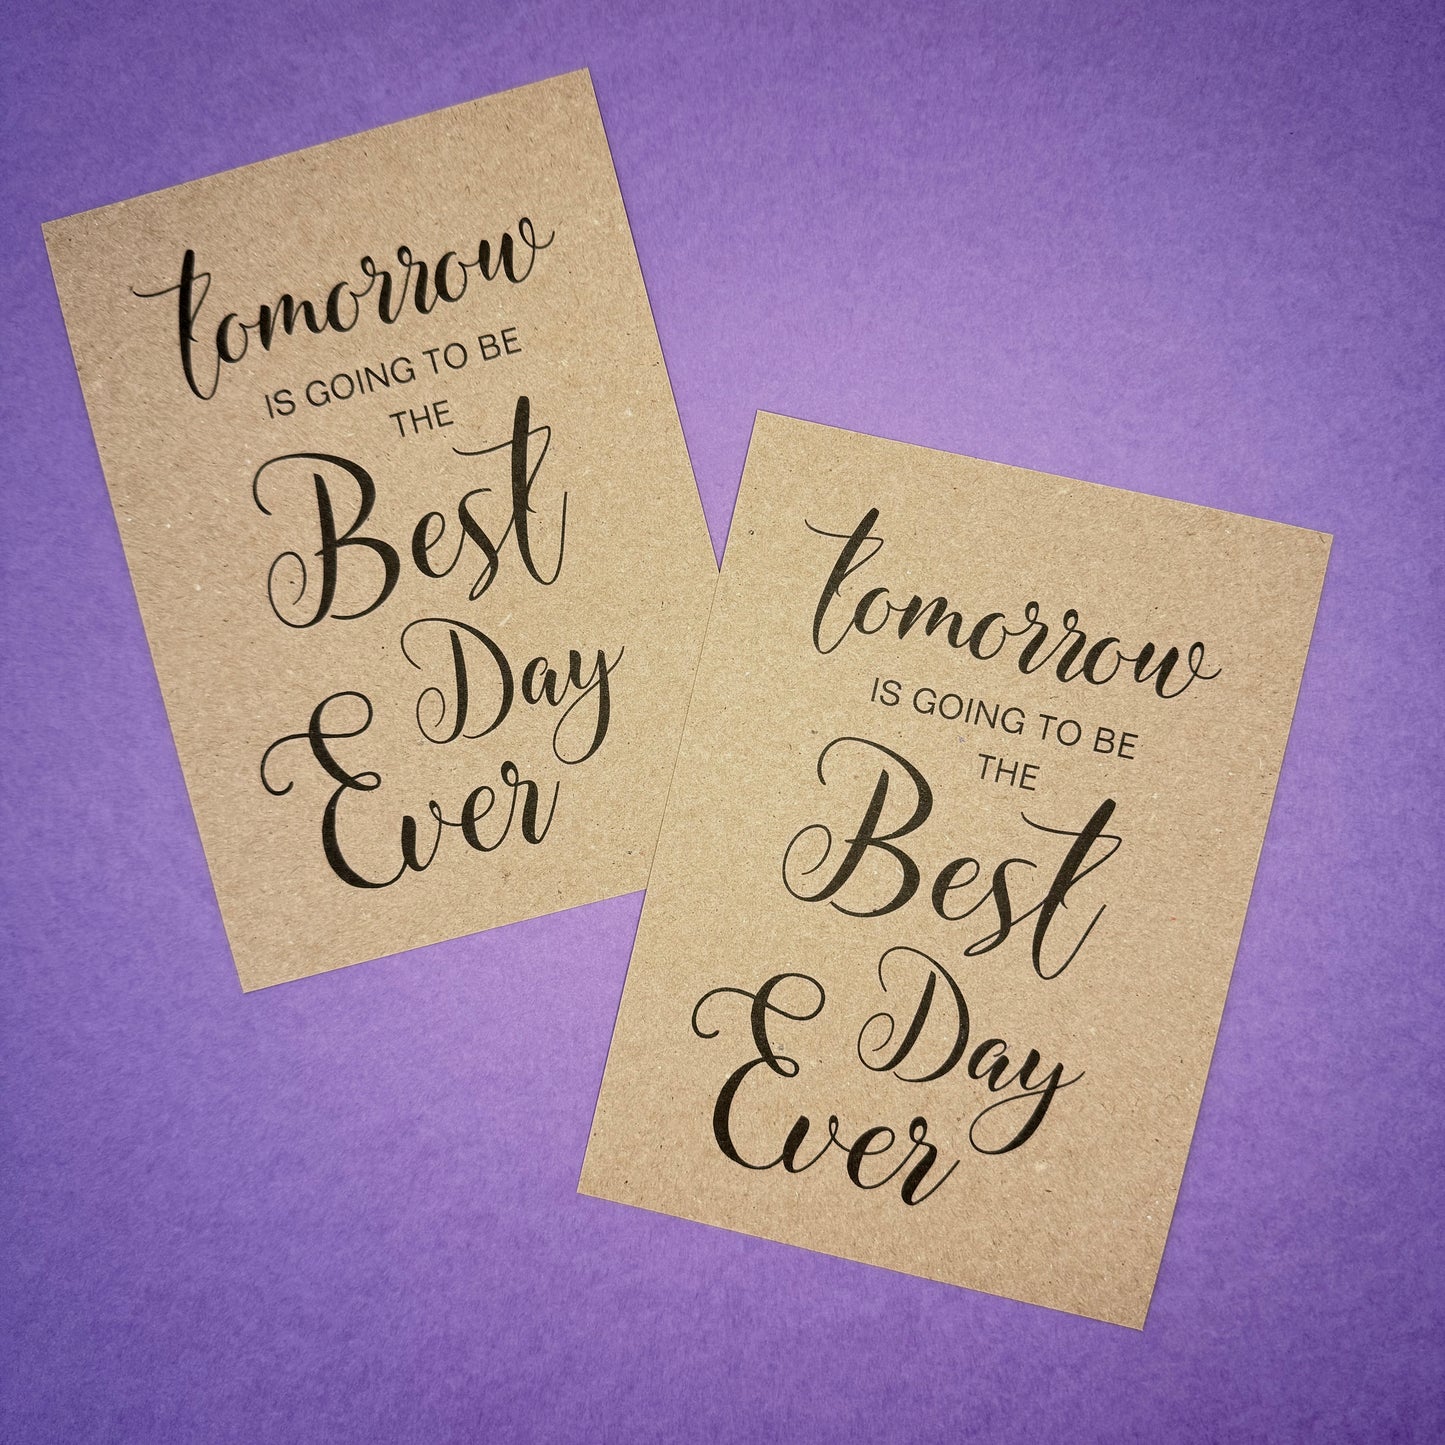 tomorrow
IS GOING TO BE
THE
Best
Day
Ever
tomorrow
IS GOING TO BE
THE
Best
Day
Ever